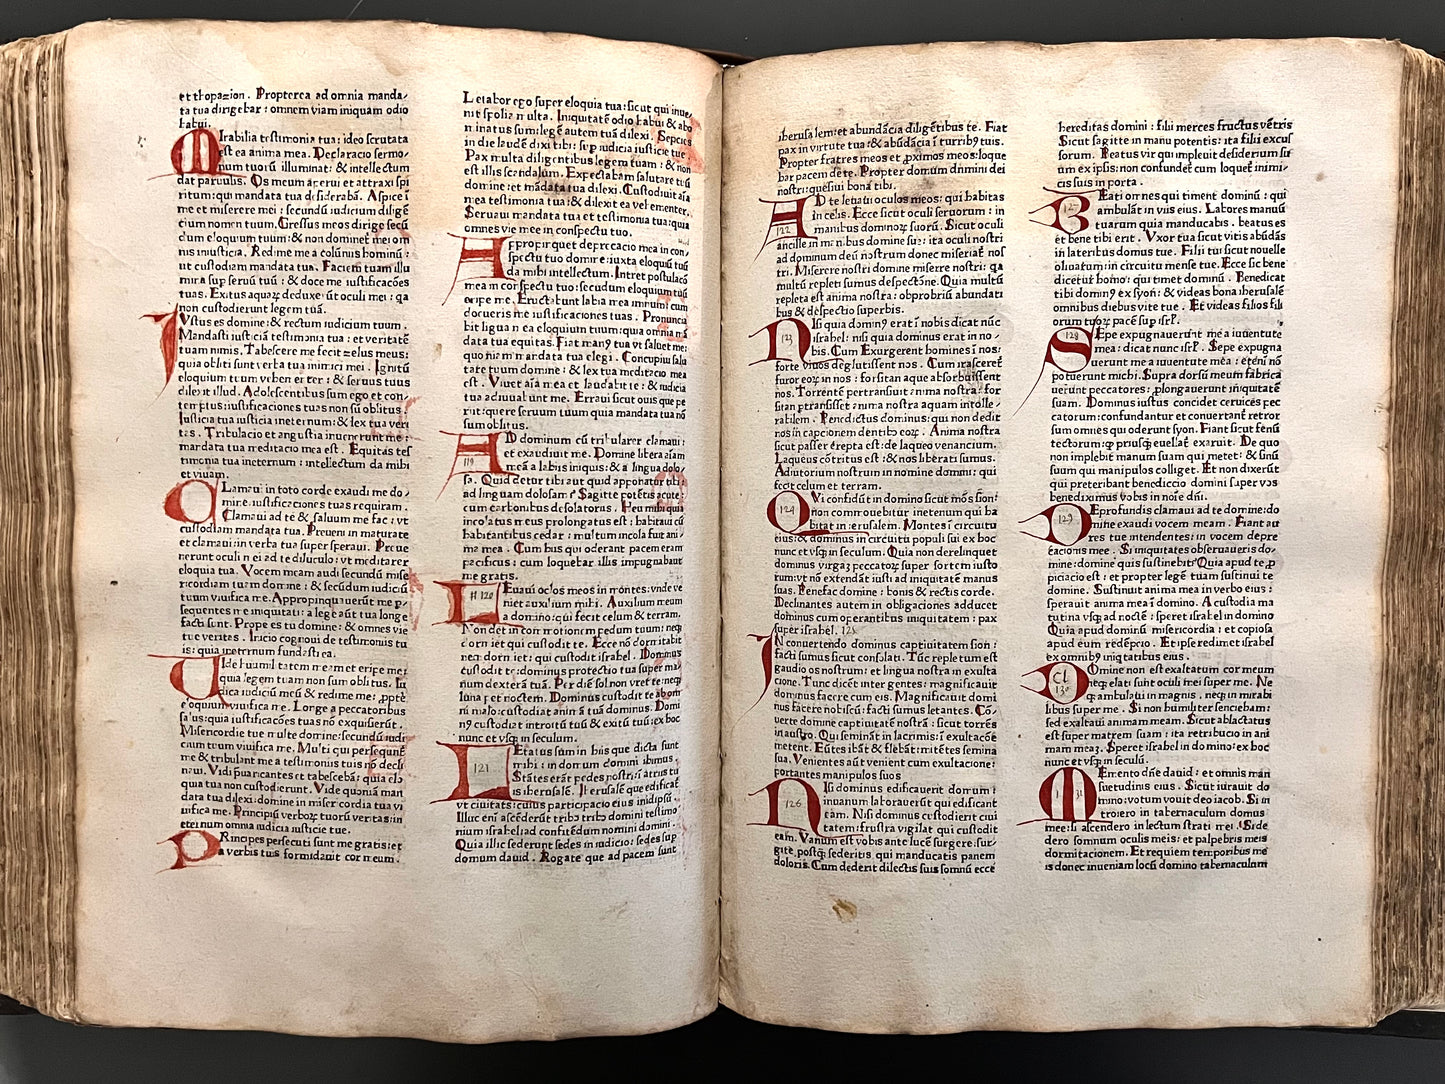 et thopazion. Propterea ad omnia manda/
ta tua dirigebar: omnem viam iniquam odio
habui.
MIrabilia testimonia tua: ideo scrutata
est ea anima mea. Declaracio sermo/
num tuorū illuminat: & intellectum
dat paruulis. Os meum aperui et attraxi spi
ritum: qui mandata tua desiderabā. Aspice ī
me et miserere mei: secundū iudicium diligē
cium nomen tuum. Gressus meos dirige secū
dum eloquium tuum: & non dominet mei om
nis iniusticia. Redime me a calūniis hominū:
ut custodiam mandata tua. Faciem tuam illu
mina sup seruū tuū: & doce me iustificacōes
tuas. Exitus aquaꝝ deduxerūt oculi mei: qa
non custodierunt legem tuā.
IVstus es domine: & rectum iudicium tuum.
Mandasti iusticiā testimonia tua: et veritatē
tuam nimis. Tabescere me fecit zelus meus:
quia obliti sunt verba tua inimici mei. Ignitū
eloquium tuum vehementer: & seruus tuus
dilexit illud. Adolescentulus sum ego et con/
temptus: iustificaciones tuas non sū oblitus.
Iusticia tua iusticia ineternum: & lex tua veri
tas. Tribulacio et angustia inuenerunt me:
mandata tua meditacio mea est. Equitas tes
timonia tua ineternum: intellectum da mihi
et viuam.
CLamaui in toto corde exaudi me do/
mine: iustificaciones tuas requiram.
Clamaui ad te & saluum me fac: vt
custodiam mandata tua. Preueni in maturate
et clamaui: in verba tua super speraui. Preue
nerunt oculi mei ad te diluculo: vt meditarer
eloquia tua. Vocem meam audi secundū mise
ricordiam tuam domine: & secūdum iudiciū
tuum viuifica me. Appropinquauerūt me pꝫ
sequentes me iniquitati: a lege aūt tua longe
facti sunt. Prope es tu domine: & omnes vie
tue veritas. Inicio cognoui de testimoniis tu
is: quia ineternum fundasti ea.
VIde humilitatem meam et eripe me:
quia legem tuam non sum oblitus. Iu
dica iudiciū meū & redime me: ppte
eloquium viuifica me. Longe a peccatoribus
salus: quia iustificacōes tuas nō exquisierūt.
Misericordie tue multe domine: secundū iudi
cium tuum viuifica me. Multi qui persequūt
me & tribulant me: a testimoniis tuis nō decli
naui. Vidi p̄uaricantes et tabescebā: quia elo
quia tua non custodierunt. Vide quoniā man
data tua dilexi: domine in misericordia tua vi
uifica me. Principiū verboꝝ tuorū veritas: in
eternum omnia iudicia iusticie tue.
PRincipes persecuti sunt me gratis: et
a verbis tuis formidauit cor meum.
Letabor ego super eloquia tua: sicut qui inue/
nit spolia multa. Iniquitatē odio habui & abo
minatus sum: legē autem tuā dilexi. Sepcies
in die laudē dixi tibi: sup iudicia iusticie tue.
Pax multa diligentibus legem tuam: & non
est illis scandalum. Expectabam salutare tuū
domine: et mādata tua dilexi. Custodiuit aīa
mea testimonia tua: & dilexit ea vehementer.
Seruaui mandata tua et testimonia tua: quia
omnes vie mee in conspectu tuo.
APpropinquet deprecacio mea in con/
spectu tuo domine: iuxta eloquiū tuū
da mihi intellectum. Intret postulacō
mea in conspectu tuo: secundum eloquium tuū
eripe me. Eructabunt labia mea imnum: cum
docueris me iustificaciones tuas. Pronuncia
bit ligua mea eloquium tuum: quia omnia mā
data tua equitas. Fiat manꝰ tua vt saluet me:
quoniam mandata tua elegi. Concupiui salu
tare tuum domine: & lex tua meditacio mea
est. Viuet aīa mea et laudabit te: & iudicia
tua adiuuabunt me. Erraui sicut ouis que pe
riit: quere seruum tuum quia mandata tua nō
sum oblitus.
AD dominum cū tribularer clamaui:
et exaudiuit me. Domine libera aīam
meā a labiis iniquis: & a lingua dolo/
sa. Quid detur tibi aut quid apponatur tibi:
ad linguam dolosam? Sagitte potētis acute:
cum carbonibus desolatoriis. Heu mihi quia
incolatus meus prolongatus est: habitaui cū
habitantibus cedar: multum incola fuit ani/
ma mea. Cum hiis qui oderant pacem eram
pacificus: cum loquebar illis impugnabant
me gratis.
119
LEuaui oclos meos in mōntes: vnde ve
niet auxilium mihi. Auxilium meum
a domino: qui fecit celum & terram.
Non det in commotionem pedum tuum: neqꝫ
dormiet qui custodit te. Ecce nō dormitabit
neqꝫ dormiet: qui custodit israhel. Dominus
custodit te: dominus protectio tua super ma/
num dexterā tuā. Per diē sol non vret te: neqꝫ
luna per noctem. Dominus custodit te ab om
ni malo: custodiat animā tuā dominus. Domi
nꝰ custodiat introitū tuū & exitū tuū: ex hoc
nunc et vsqꝫ in seculum.
120
LEtatus sum in hiis que dicta sunt
mihi: in domum domini ibimus.
Stātes erāt pedes nostri: ī atriis tu
is iherusalē. Iherusalē que edificat̄
vt ciuitas: cuius participacio eius in idipsū.
Illuc eni ascēderūt tribꝰ tribꝰ domini testimo
nium israhel: ad confitēdum nomini domini.
Quia illic sederunt sedes in iudicio: sedes sup
domum dauid. Rogate que ad pacem sunt
121
iherusalem: et abundācia diligētibus te. Fiat
pax in virtute tua: & abūdācia ī turribꝰ tuis.
Propter fratres meos et pximos meos: loque
bar pacem de te. Propter domum domini dei
nostri: quesiui bona tibi.
AD te leuaui oculos meos: qui habitas
in celis. Ecce sicut oculi seruorum: in
manibus dominoꝝ suorū. Sicut oculi
ancille in manibus domine sue: ita oculi nostri
ad dominum deū nostrum donec misereat̄ nos
tri. Miserere nostri domine miserere nostri: qa
multū repleti sumus despectōne. Quia multū
repleta est anima nostra: obprobriū abundati
bus & despectio superbis.
122
NIsi quia dominꝰ erat ī nobis dicat nūc
israhel: nisi quia dominus erat in no/
bis. Cum Exurgerent homines ī nos:
forte viuos deglutissent nos. Cum irasceret̄
furor eoꝝ in nos: forsitan aqua absorbuissent
nos. Torrentē pertransiuit anima nostra: for
sitan ptransisset anima nostra aquam intolle/
rabilem. Benedictus dominus: qui non dedit
nos in capcionem dentibꝰ eoꝝ. Anima nostra
sicut passer erepta est: de laqueo venancium.
Laqueus cōtritus est: & nos liberati sumus.
Adiutorium nostrum in nomine domini: qui
fecit celum et terram.
123
QVi confidūt in domino sicut mōs sion:
non commouebitur ineternum qui ha
bitat in iherusalem. Montes ī circuitu
eius: & dominus in circuitu populi sui ex hoc
nunc et vsqꝫ in seculum. Quia non derelinquet
dominus virgaꝫ peccatoꝝ super sortem iusto
rum: vt nō extendāt iusti ad iniquitatē manus
suas. Benefac domine: bonis & rectis corde.
Declinantes autem in obligaciones adducet
dominus cum operantibus iniquitatem: pax
super israhel. 125
124
IN conuertendo dominus captiuitatem sion:
facti sumus sicut consolati. Tūc repletum est
gaudio os nostrum: et lingua nostra in exulta
cione. Tunc dicēt inter gentes: magnificauit
dominus facere cum eis. Magnificauit domi
nus facere nobiscū: facti sumus letantes. Cō/
uerte domine captiuitatē nostrā: sicut torrēs
in austro. Qui semināt in lacrimis: ī exultacōe
metent. Eūtes ibāt & flebāt: mitētes semina
sua. Venientes aūt venient cum exultacione:
portantes manipulos suos
NIsi dominus edificauerit domum:
inuanum laborauerūt qui edificant
eam. Nisi dominus custodierit ciui
tatem: frustra vigilat qui custodit
eam. Vanum est vobis ante lucē surgere: sur/
gite postqꝫ sederitis qui manducatis panem
doloris. Cum dederit dilectis suis somnū ecce
126
hereditas domini: filii merces fructus vētris
Sicut sagitte in manu potentis: ita filii excus
sorum. Beatus vir qui impleuit desiderium su
um ex ipsis: non confundet cum loquet inimi/
cis suis in porta.
BEati omnes qui timent dominū: qui
ambulāt in viis eius. Labores manuū
tuarum quia manducabis: beatus es
et bene tibi erit. Vxor tua sicut vitis abūdās
in lateribus domus tue. Filii tui sicut nouelle
oliuarum: in circuitu mense tue. Ecce sic bene
dicetur homo: qui timet dominū. Benedicat
tibi dominꝰ ex syon: & videas bona iherusalē
omnibus diebus vite tue. Et videas filios fili
orum tuoꝝ: pacē sup isrl.
127
SEpe expugnauerunt me a iuuentute
mea: dicat nunc isrl. Sepe expugna
uerunt me a iuuentute mea: etenī nō
potuerunt michi. Supra dorsū meum fabrica
uerunt peccatores: plongauerunt iniquitatē
suam. Dominus iustus concidet ceruices pec
catorum: confundantur et conuertant retror
sum omnes qui oderunt syon. Fiant sicut fenū
tectorum: qꝫ priusqꝫ euellat exaruit. De quo
non implebit manum suam qui metet: & sinū
suum qui manipulos colliget. Et non dixerūt
qui preteribant benediccio domini super vos
benediximus vobis in noīe dni.
128
DE profundis clamaui ad te domine: do
mine exaudi vocem meam. Fiant au
res tue intendentes: in vocem depre
cacionis mee. Si iniquitates obseruaueris do/
mine: domine quis sustinebit? Quia apud te p
piciacio est: et propter legē tuam sustinui te
domine. Sustinuit anima mea in verbo eius:
sperauit anima mea ī domino. A custodia ma
tutina vsqꝫ ad noctē: speret israhel in domino
Quia apud dominū misericordia: et copiosa
apud eum redēpcio. Et ipse redimet israhel
ex omnibꝰ iniqtatibus eius.
129
DOmine non est exaltatum cor meum:
neqꝫ elati sunt oculi mei super me. Ne
qꝫ ambulaui in magnis, neqꝫ in mirabi
libus super me. Si non humiliter senciebam:
sed exaltaui animam meam. Sicut ablactatus
est super matrem suam: ita retribucio in ani
mam meaꝫ. Speret israhel in domino: ex hoc
nunc et vsqꝫ in seculū.
130
MEmento dn̄e dauid: et omnis man
suetudinis eius. Sicut iurauit do
mino: votum vouit deo iacob. Si in
troiero in tabernaculum domus
mee: si ascendero in lectum strati mei. Si de
dero somnum oculis meis: et palpebris meis
dormitacionem. Et requiem temporibus meis
is donec inueniam locū domino tabernaculum
131